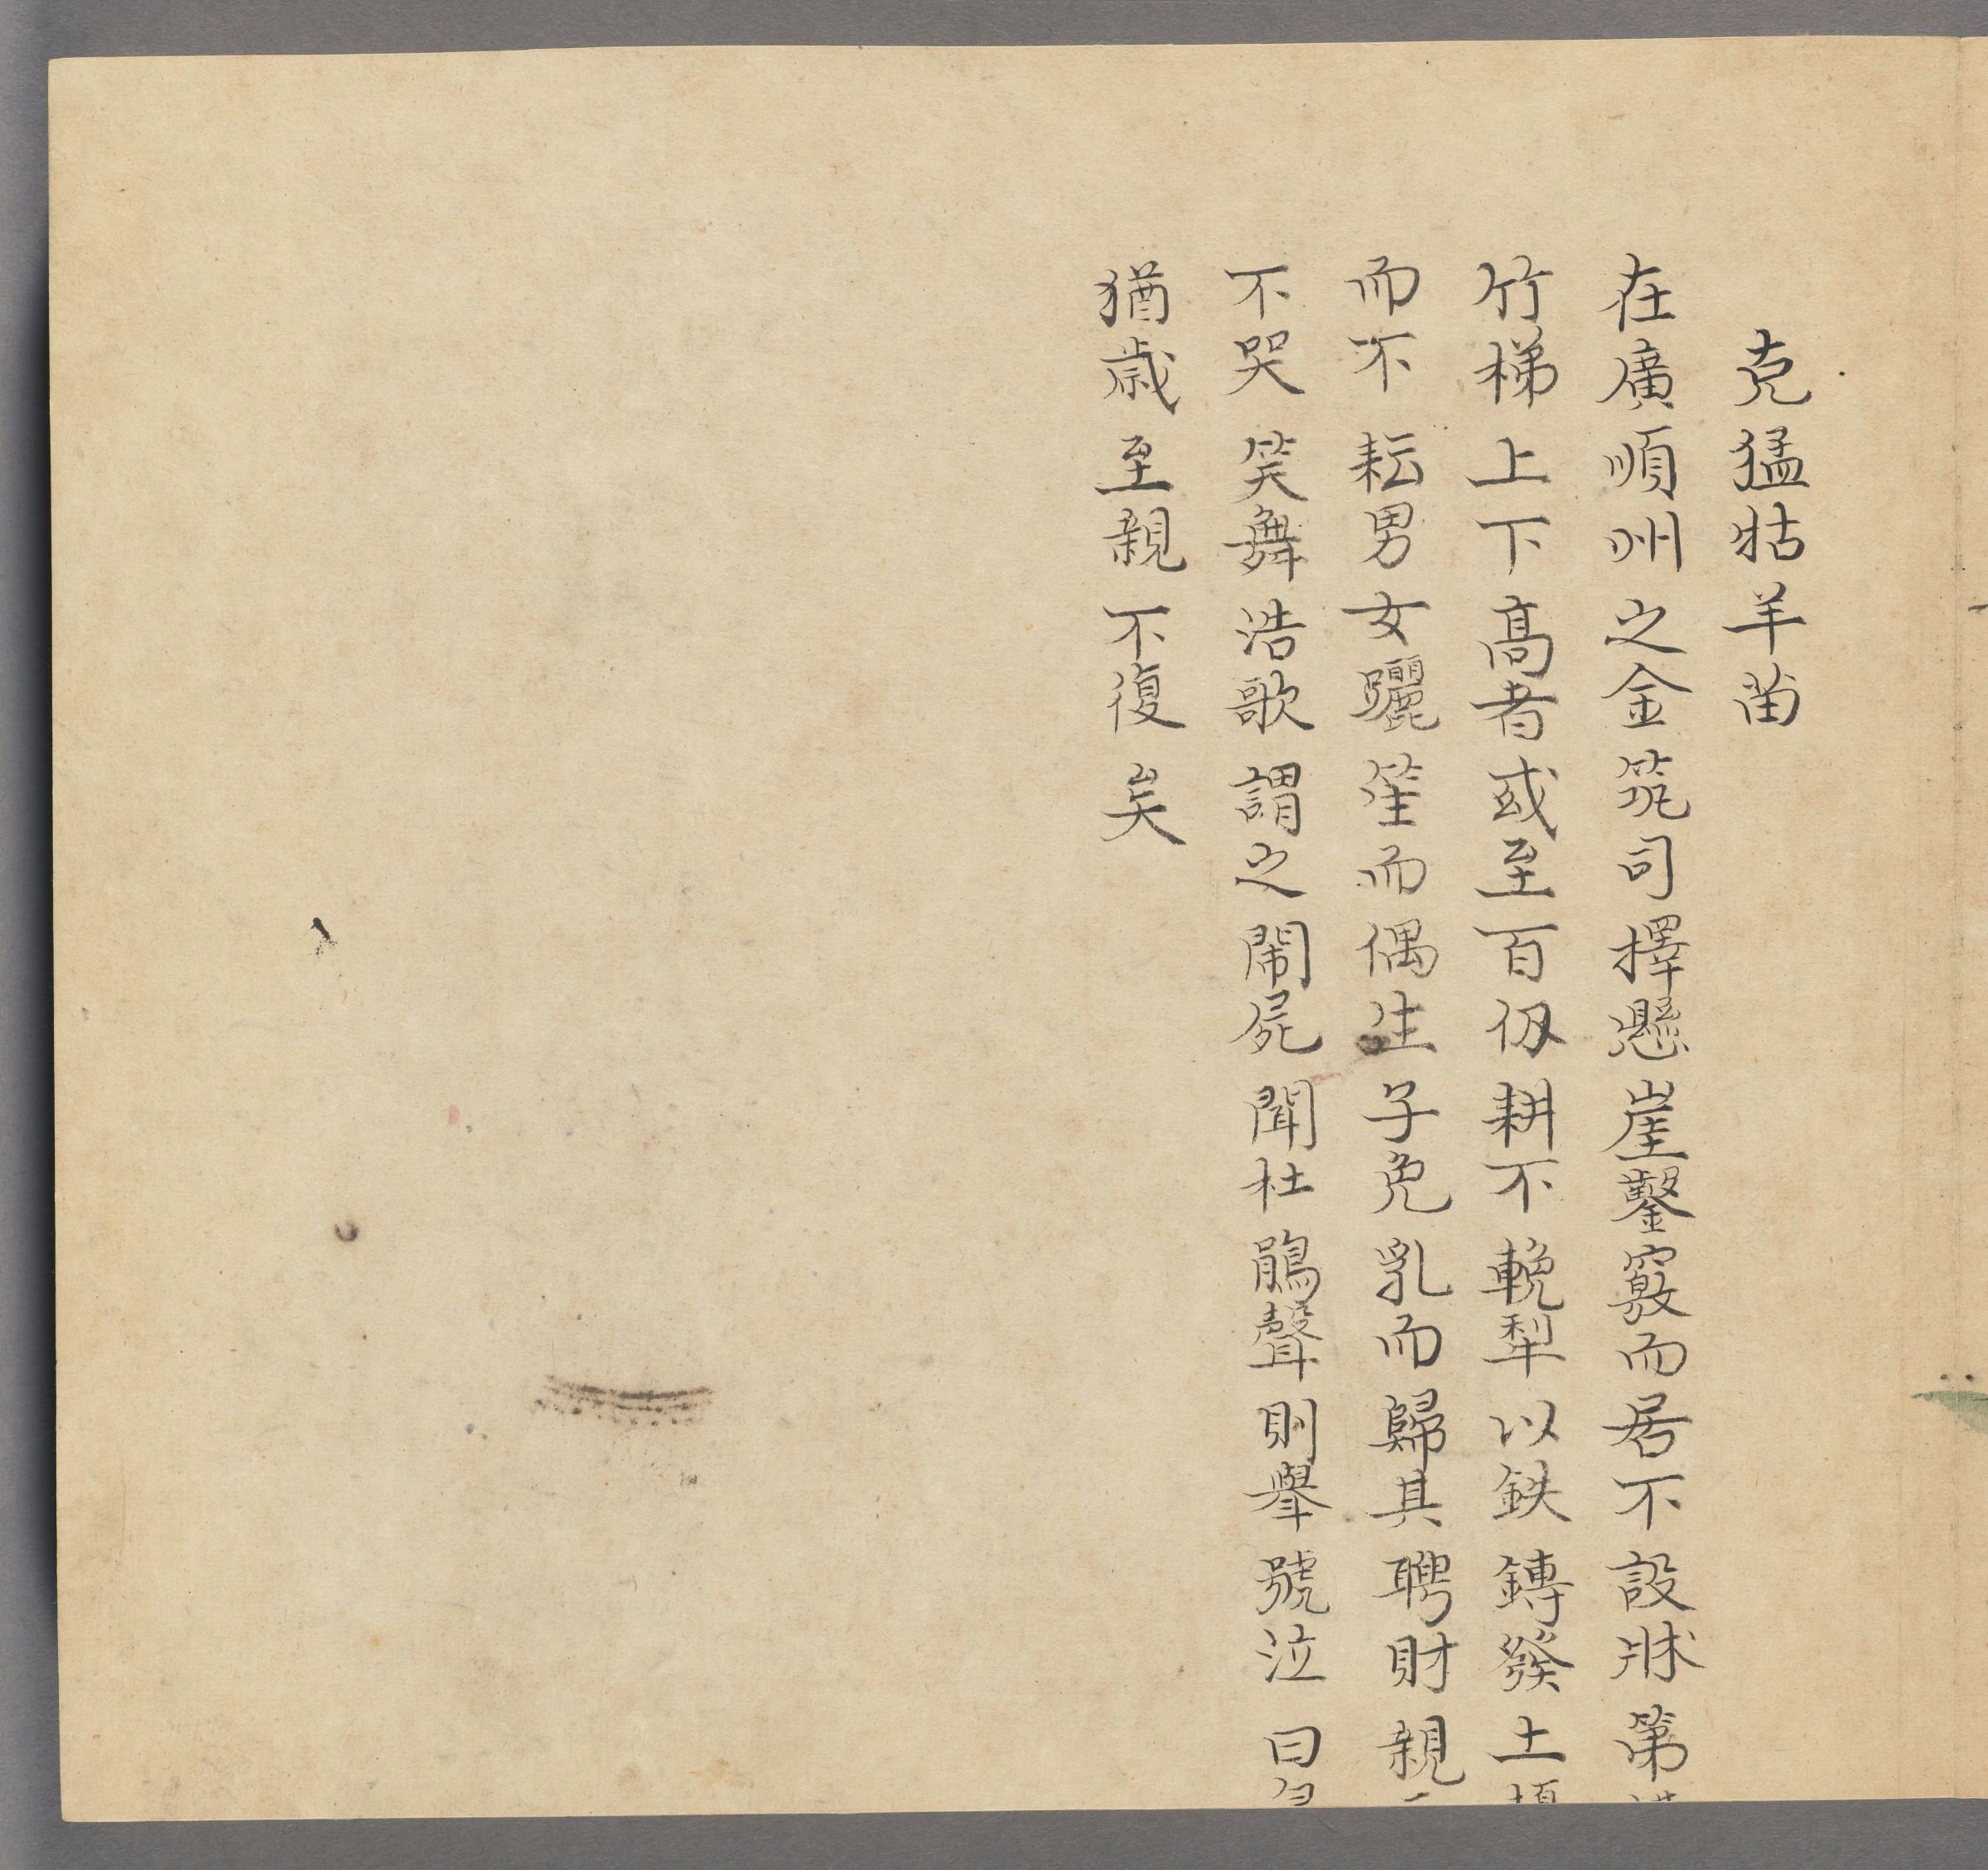 克猛牯羊苗
在廣順州之金筑司擇懸崖鑿竅而居不設牀第
竹梯上下高者或至百仭耕不輓犁以鉄鎛發土
而不耘男女躧笙而偶生子免乳而歸其聘財親
不哭笑舞浩歌謂之鬧屍聞杜鵑聲則舉號泣曰
猶歳至親不復矣